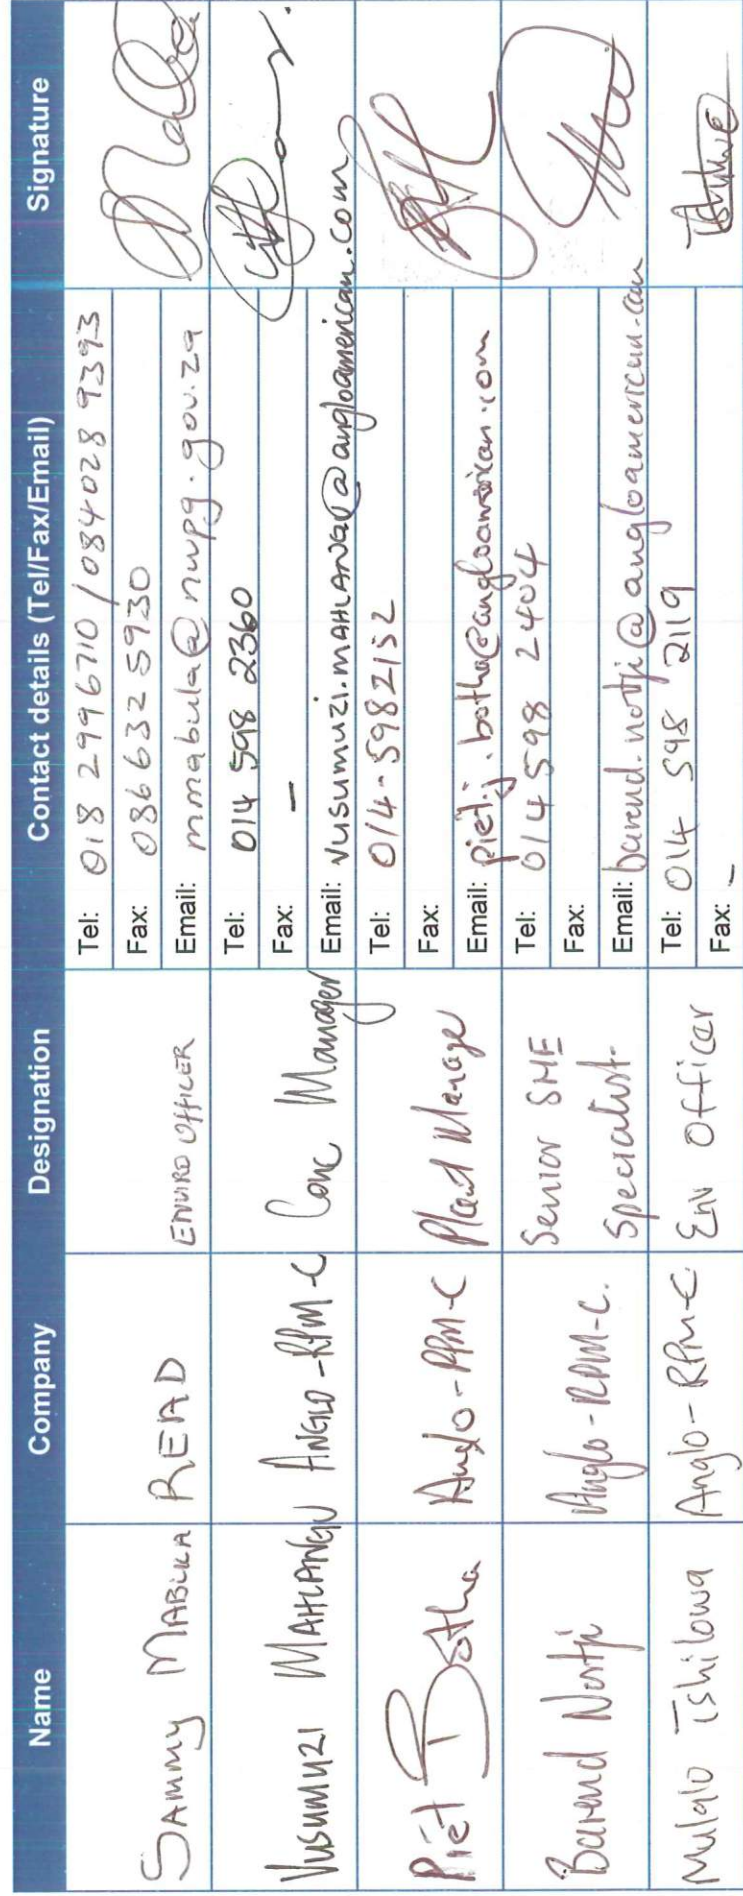 Name Company Designation Contact details (Tel/Fax/Email) Signature
SAMMY MABULA READ ENVIRO OFFICER
Tel: 018 2996710 / 084 028 9393
Fax: 086 632 5930
Email: mmabula@nwpg.gov.za
VUSUMUZI MAHLANGU ANGLO-RPM-C Conc Manager
Tel: 014 598 2360
Fax: –
Email: vusumuzi.MAHLANGU@angloamerican.com
Piet Botha Anglo-RPM-C Plant Manage
Tel: 014-5982152
Fax:
Email: piet.j.botha@angloamerican.com
Barend Nortji Anglo-RPM-C. Senior SHE
Specialist
Tel: 014 598 2404
Fax:
Email: barend.nortji@angloamerican.com
Mulalo Tshilowa Anglo-RPM-C Env Officer
Tel: 014 598 2119
Fax: –